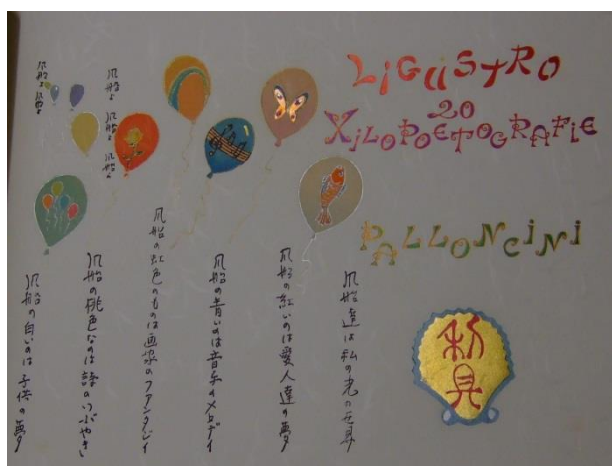 LiGUSTRO
20
XiLOPOETOGRAFiE
PALLONCiNi
風船達は私の光の玩具
風船の紅いのは愛人達の夢
風船の青いのは音楽のメロディ
風船の虹色のものは画家のファンタジイ
風船の桃色なのは詩のつぶやき
風船の白いのは子供の夢
風船よ 風船よ 風船よ
風船よ
利見